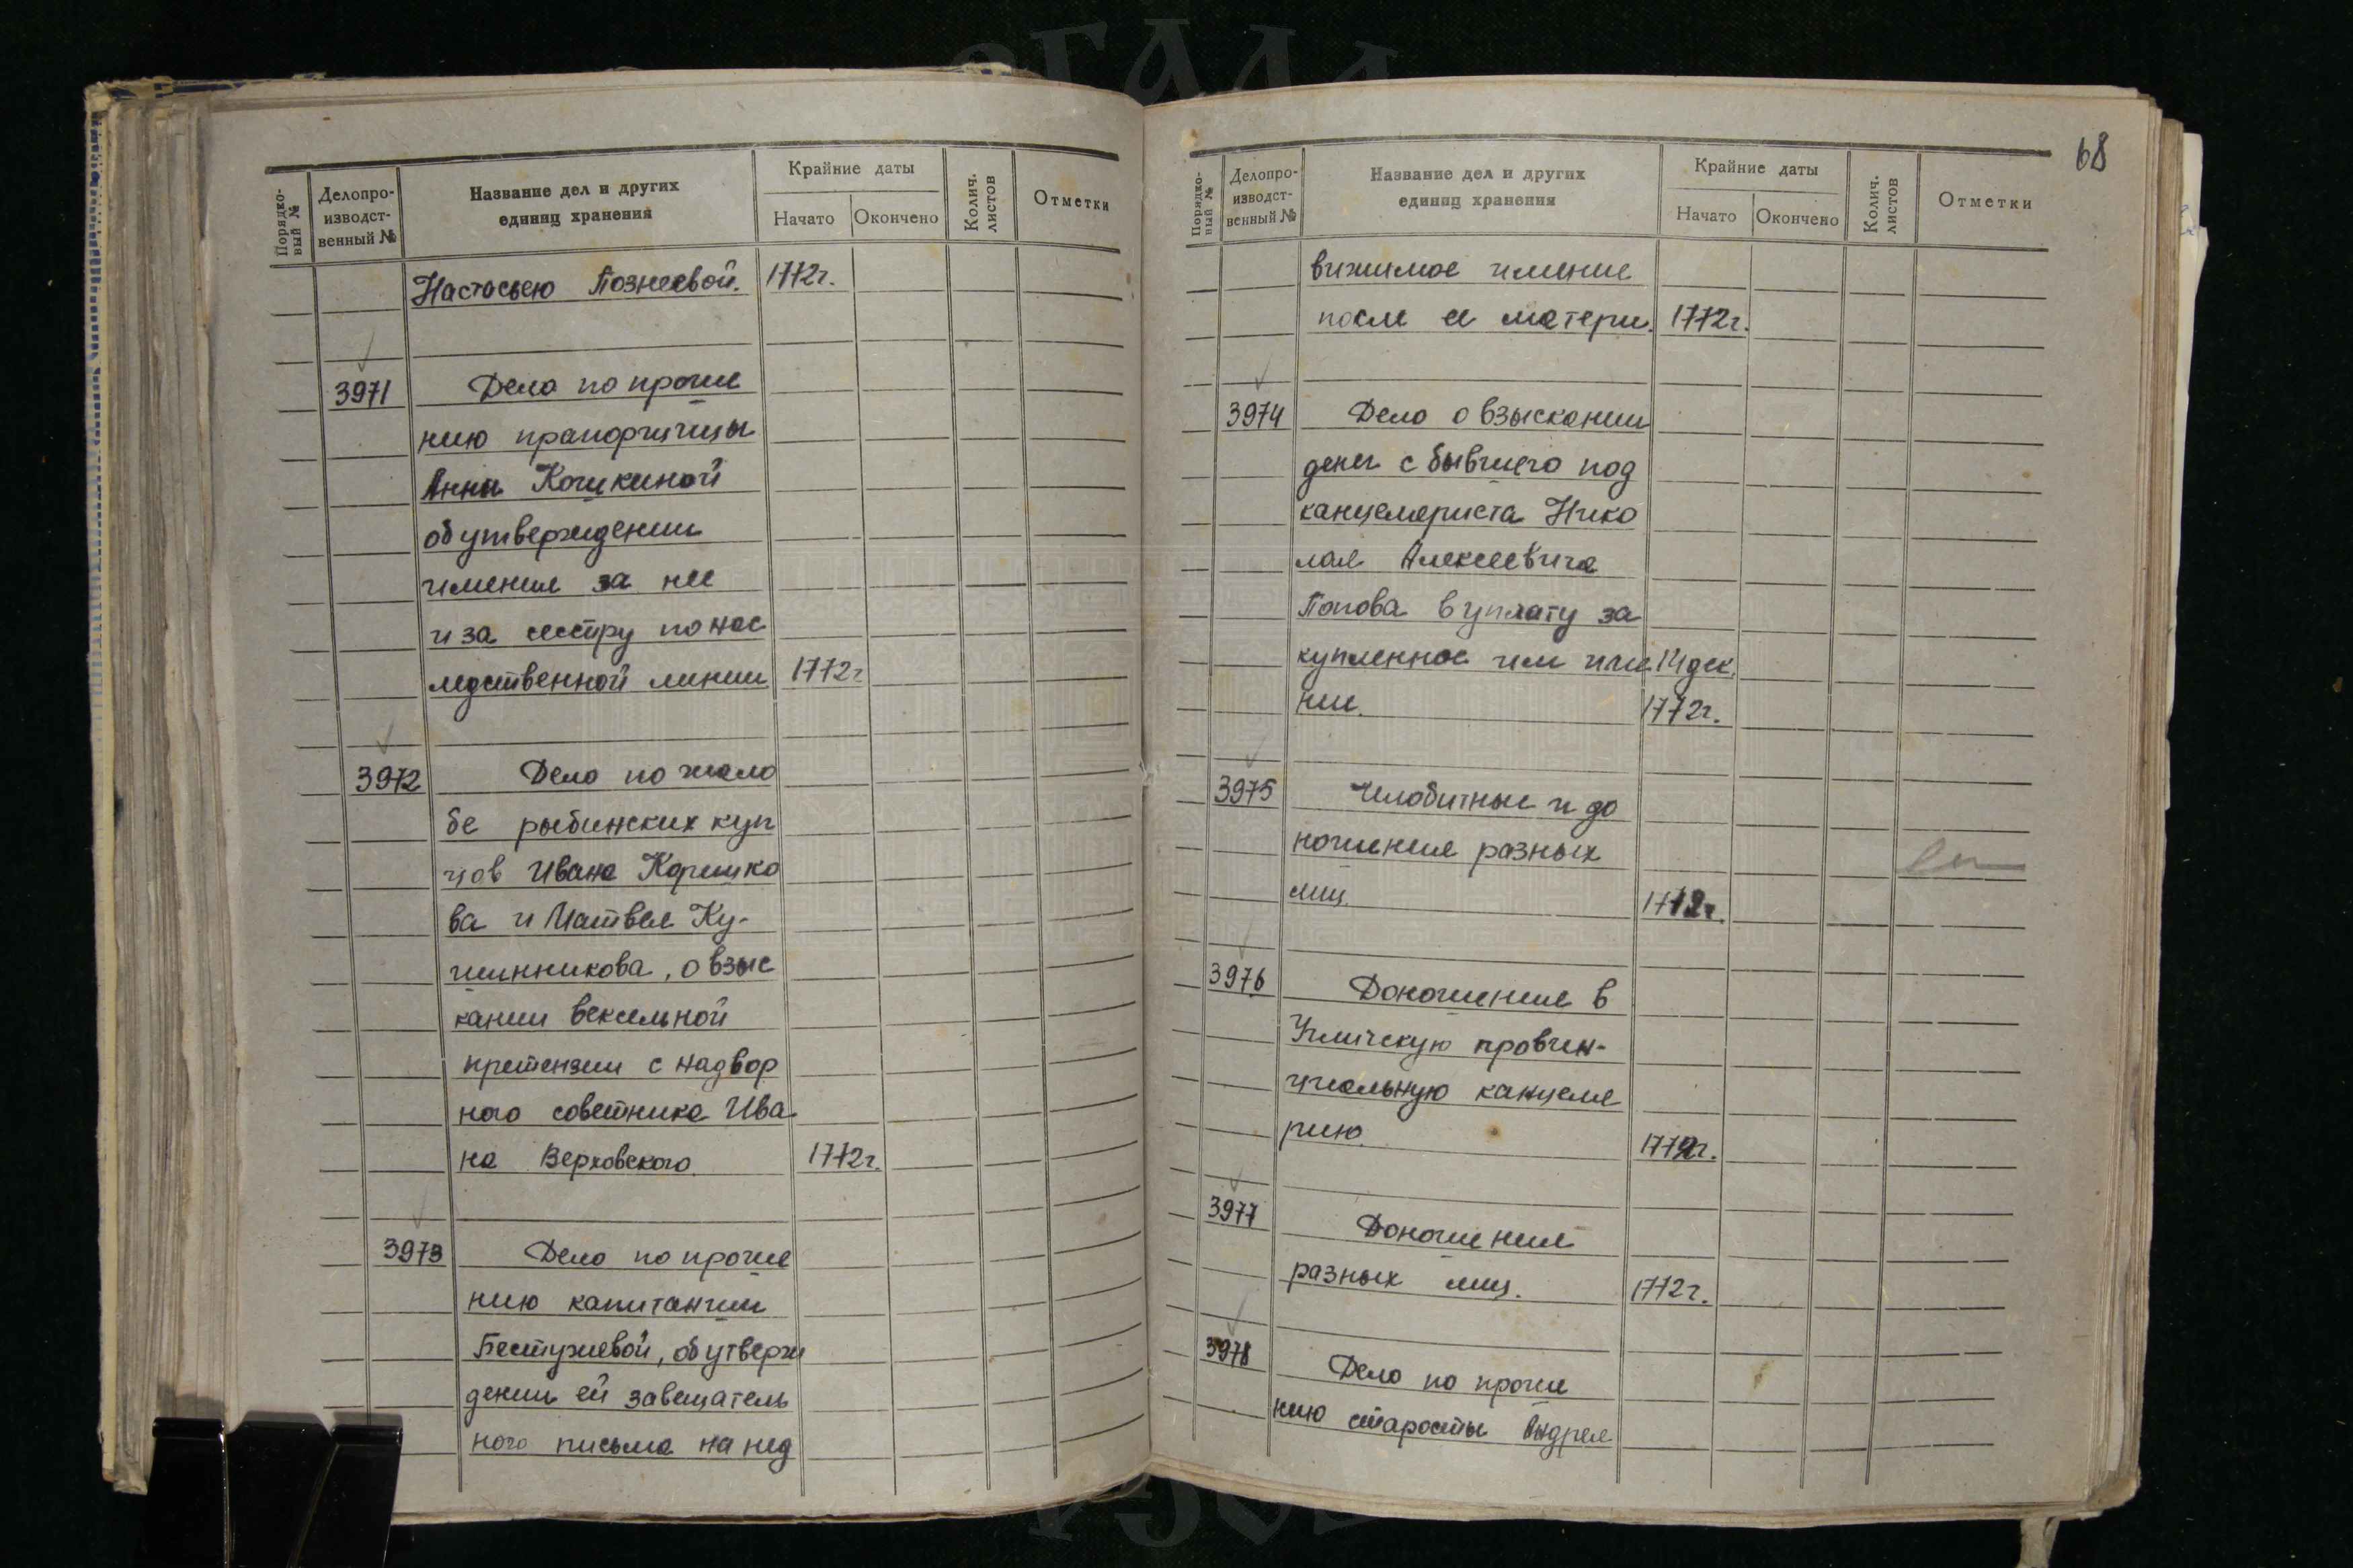 Порядко-
вый №
Делопро-
изводст-
венный №
Название дел и других
единиц хранения
Крайние даты
Начато
Окончено
Колич.
листов
Отметки
Настасьею Познеевой. 1772г.
3971 Дело по проше
нию прапорщицы
Анны Кошкиной
об утверждении
имения за нее
и за сестру по нас
ледственной линии 1772г
3972 Дело по жало
бе рыбинских куп
цов Ивана Коришко
ва и Матвея Ку-
шинникова, о взыс
кании вексельной
претензии с надвор
ного советника Ива
на Верховского. 1772г.
3973 Дело по проше
нию капитанши
Бестужевой, об утверж
дении ей завещатель
ного письма на нед
68
Порядко-
вый №
Делопро-
изводст-
венный №
Название дел и других
единиц хранения
Крайние даты
Начато
Окончено
Колич.
листов
Отметки
вижимое имение
после ее матери. 1772г.
3974 Дело о взыскании
денег с бывшего под
канцеляриста Нико
лая Алексеевича
Попова в уплату за
купленное им име 14 дек.
ние. 1772г.
3975 Челобитные и до
ношения разных
лиц. 1772г.
3976 Доношения в
Угличскую провин-
циальную канцеля
рию. 1772г.
3977 Доношения
разных лиц. 1772г.
3978 Дело по проше
нию старосты Андрея